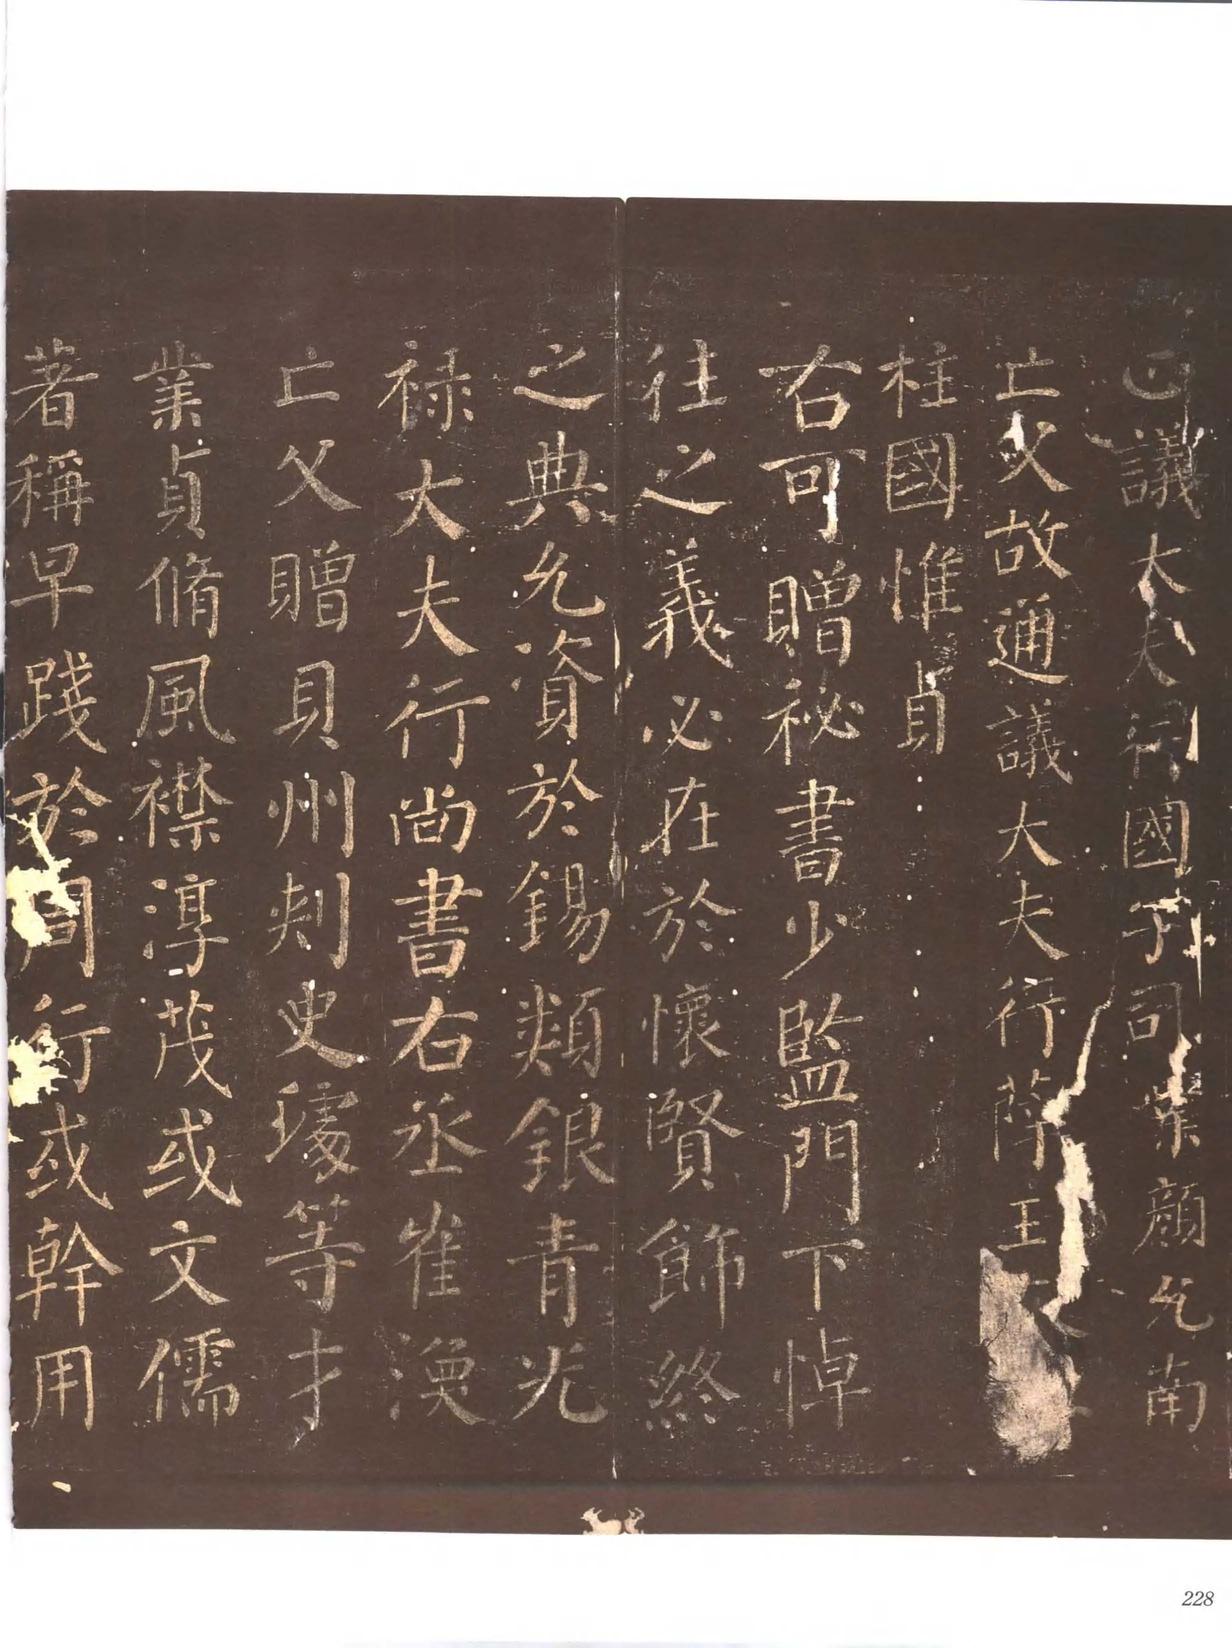 正議大夫國子司業顏允南
亡父故通議大夫行薛王
柱國惟貞
右可贈祕書少監門下悼
往之義必在於懷賢飾終
之典允資於錫類銀青光
祿大夫行尚書右丞崔渙
亡父贈貝州刺史璩等才
業貞脩風襟淳茂或文儒
著稱早踐於周行或幹用
228